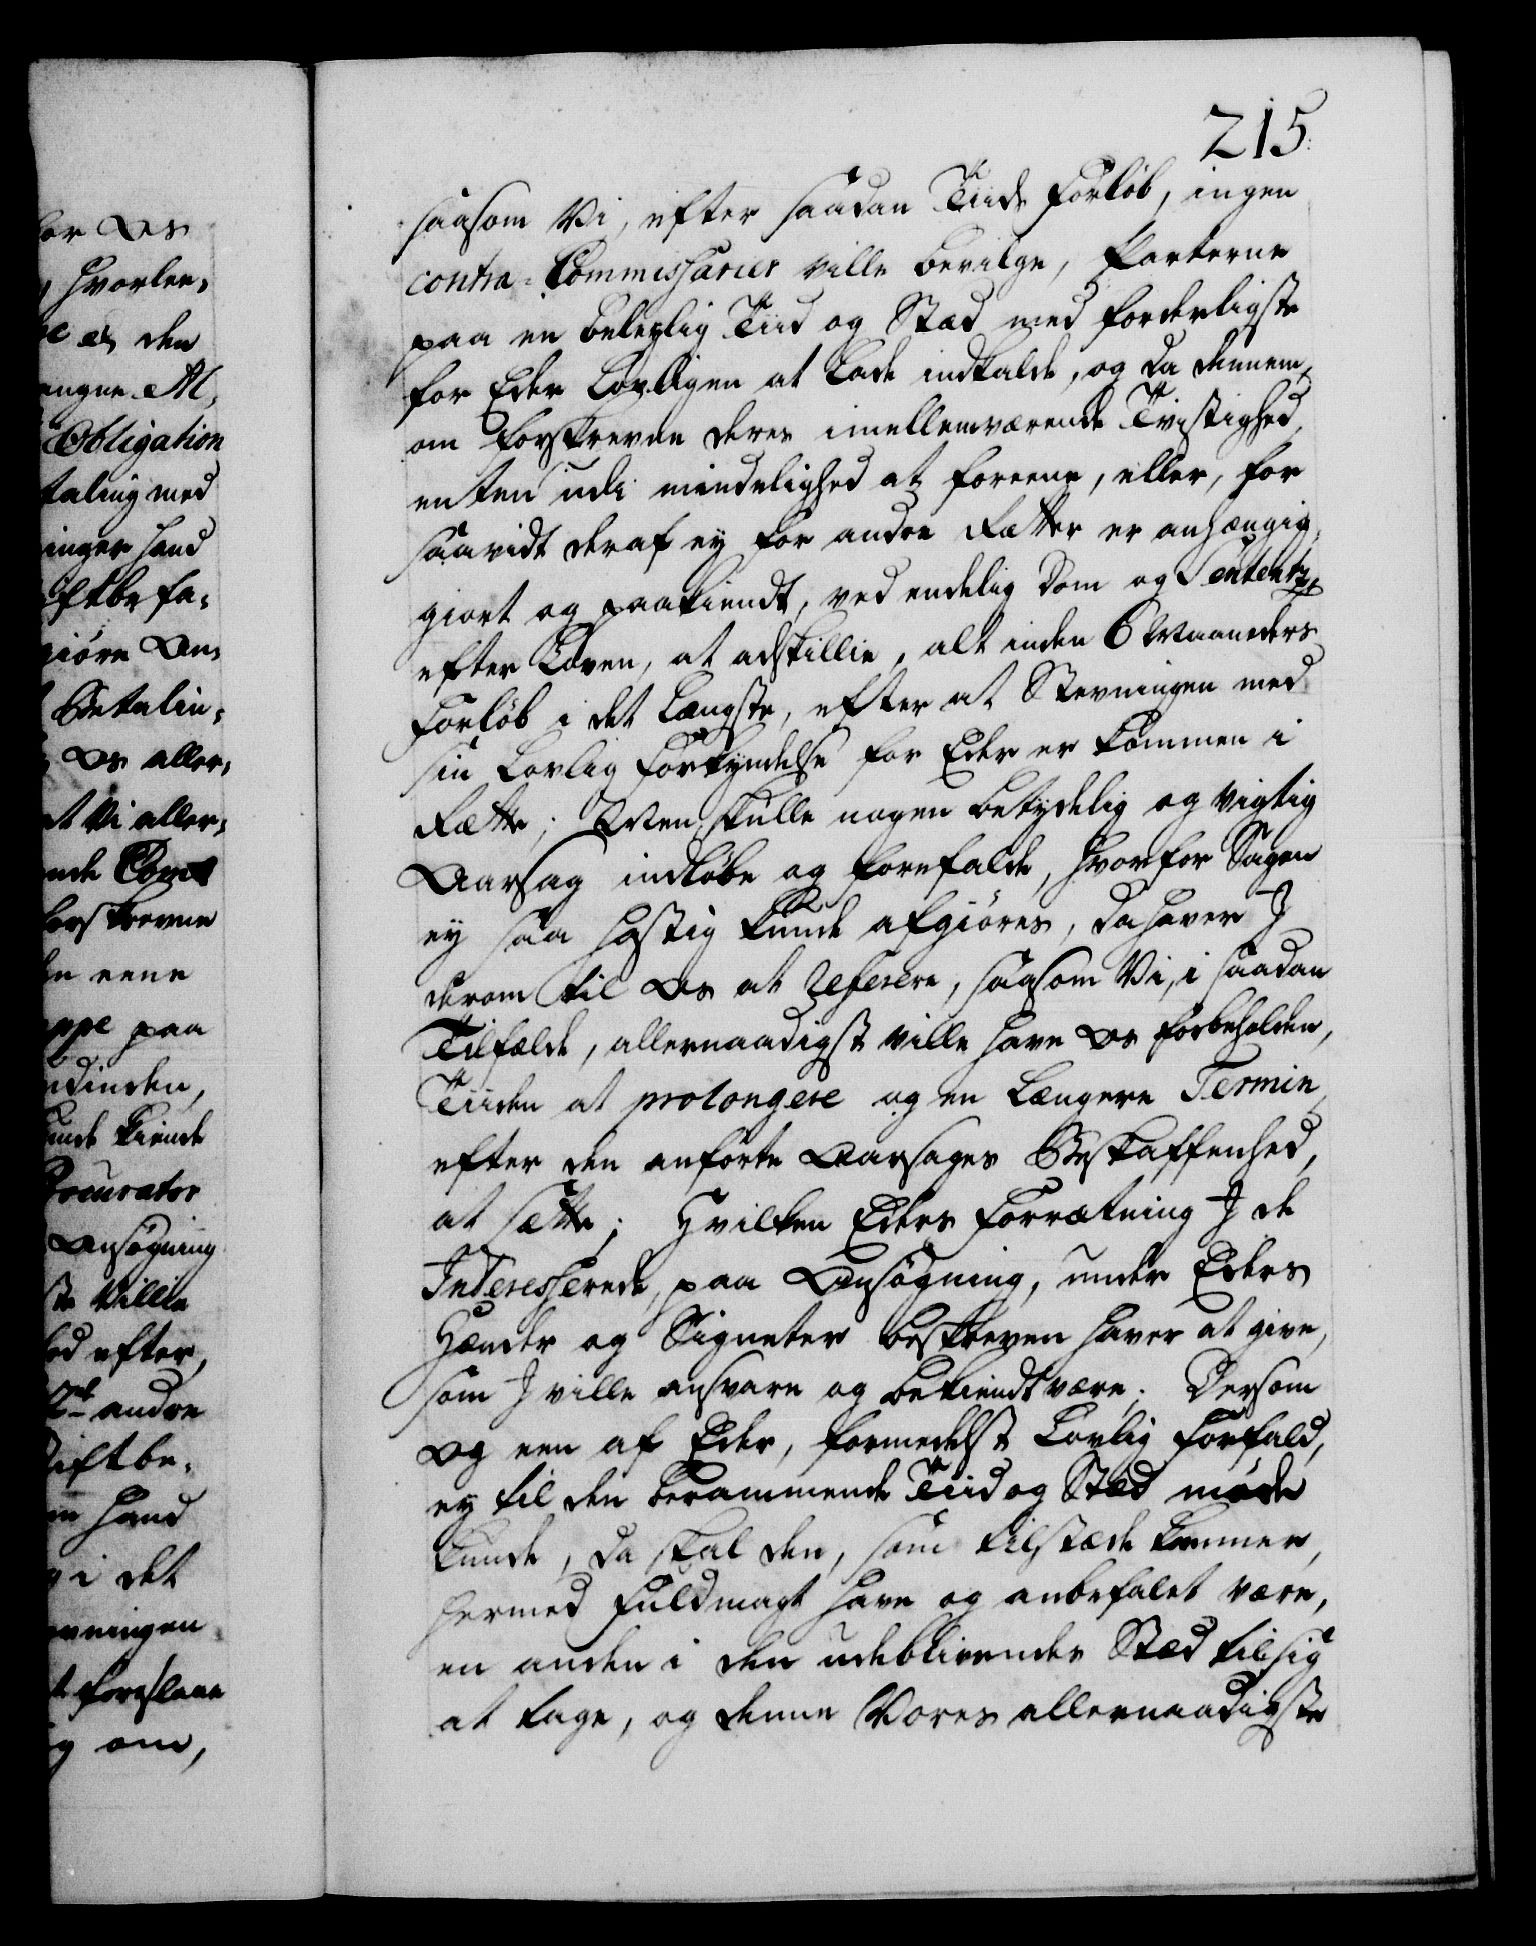 215.
saasom Vi, efter saadan Tiids Forløb, ingen
contra-Commissarier ville bevilge, Parterne
paa en beleylig Tiid og Stæd med forderligste
for Eder Lovligen at lade indkalde, og da dennem,
om forskrevne deres imellemværende Tvistighed,
enten udi mindelighed at foreene, eller, for
saavidt deraf ej for andre Rætter er anhængig
giort og paakiendt, ved endelig Dom og Sententz,
efter Loven, at adskillie, alt inden 6 Maaneders
Forløb i det længste, efter at Stevningen med
sin Lovlig Forkyndelse for Eder er kommen i
Rætte; Men skulle nogen betydelig og vigtig
Aarsag indløbe og forefalde, hvorfor Sagen
ey saa hastig kunde afgiøres, da haver I
derom til Os at referere, saasom Vi, i saadan
Tilfælde, allernaadigst ville have Os forbeholden,
Tiiden at prolongere og en længere Termin,
efter den anførte Aarsages Beskaffenhed,
at sætte; Hvilken Eders Forrætning I de
Interesserede, paa Ansøgning, under Eders
Hænder og Signeter beskreven haver at give,
som I ville ansvare og bekiendt være. Dersom
og een af Eder, formedelst Lovlig Forfald,
ey til den berammende Tiid og Stæd møde
kunde, da skal den, som tilstæde kommer,
hermed Fuldmagt have og anbefalet være,
en anden i den udeblivendes Stæd til sig
at tage, og denne Vores allernaadigste
or Os
hvorlee-
den
Obligation
taling med
inger hand
giøre An-
Betalin-
Os aller-
t Vi aller-
forskrevne
eene
paa
kunde kiende
Procurator
Ansøgning
Villie
efter,
andre
Stiftbe-
hand
i det
evningen
foreslaae
om,